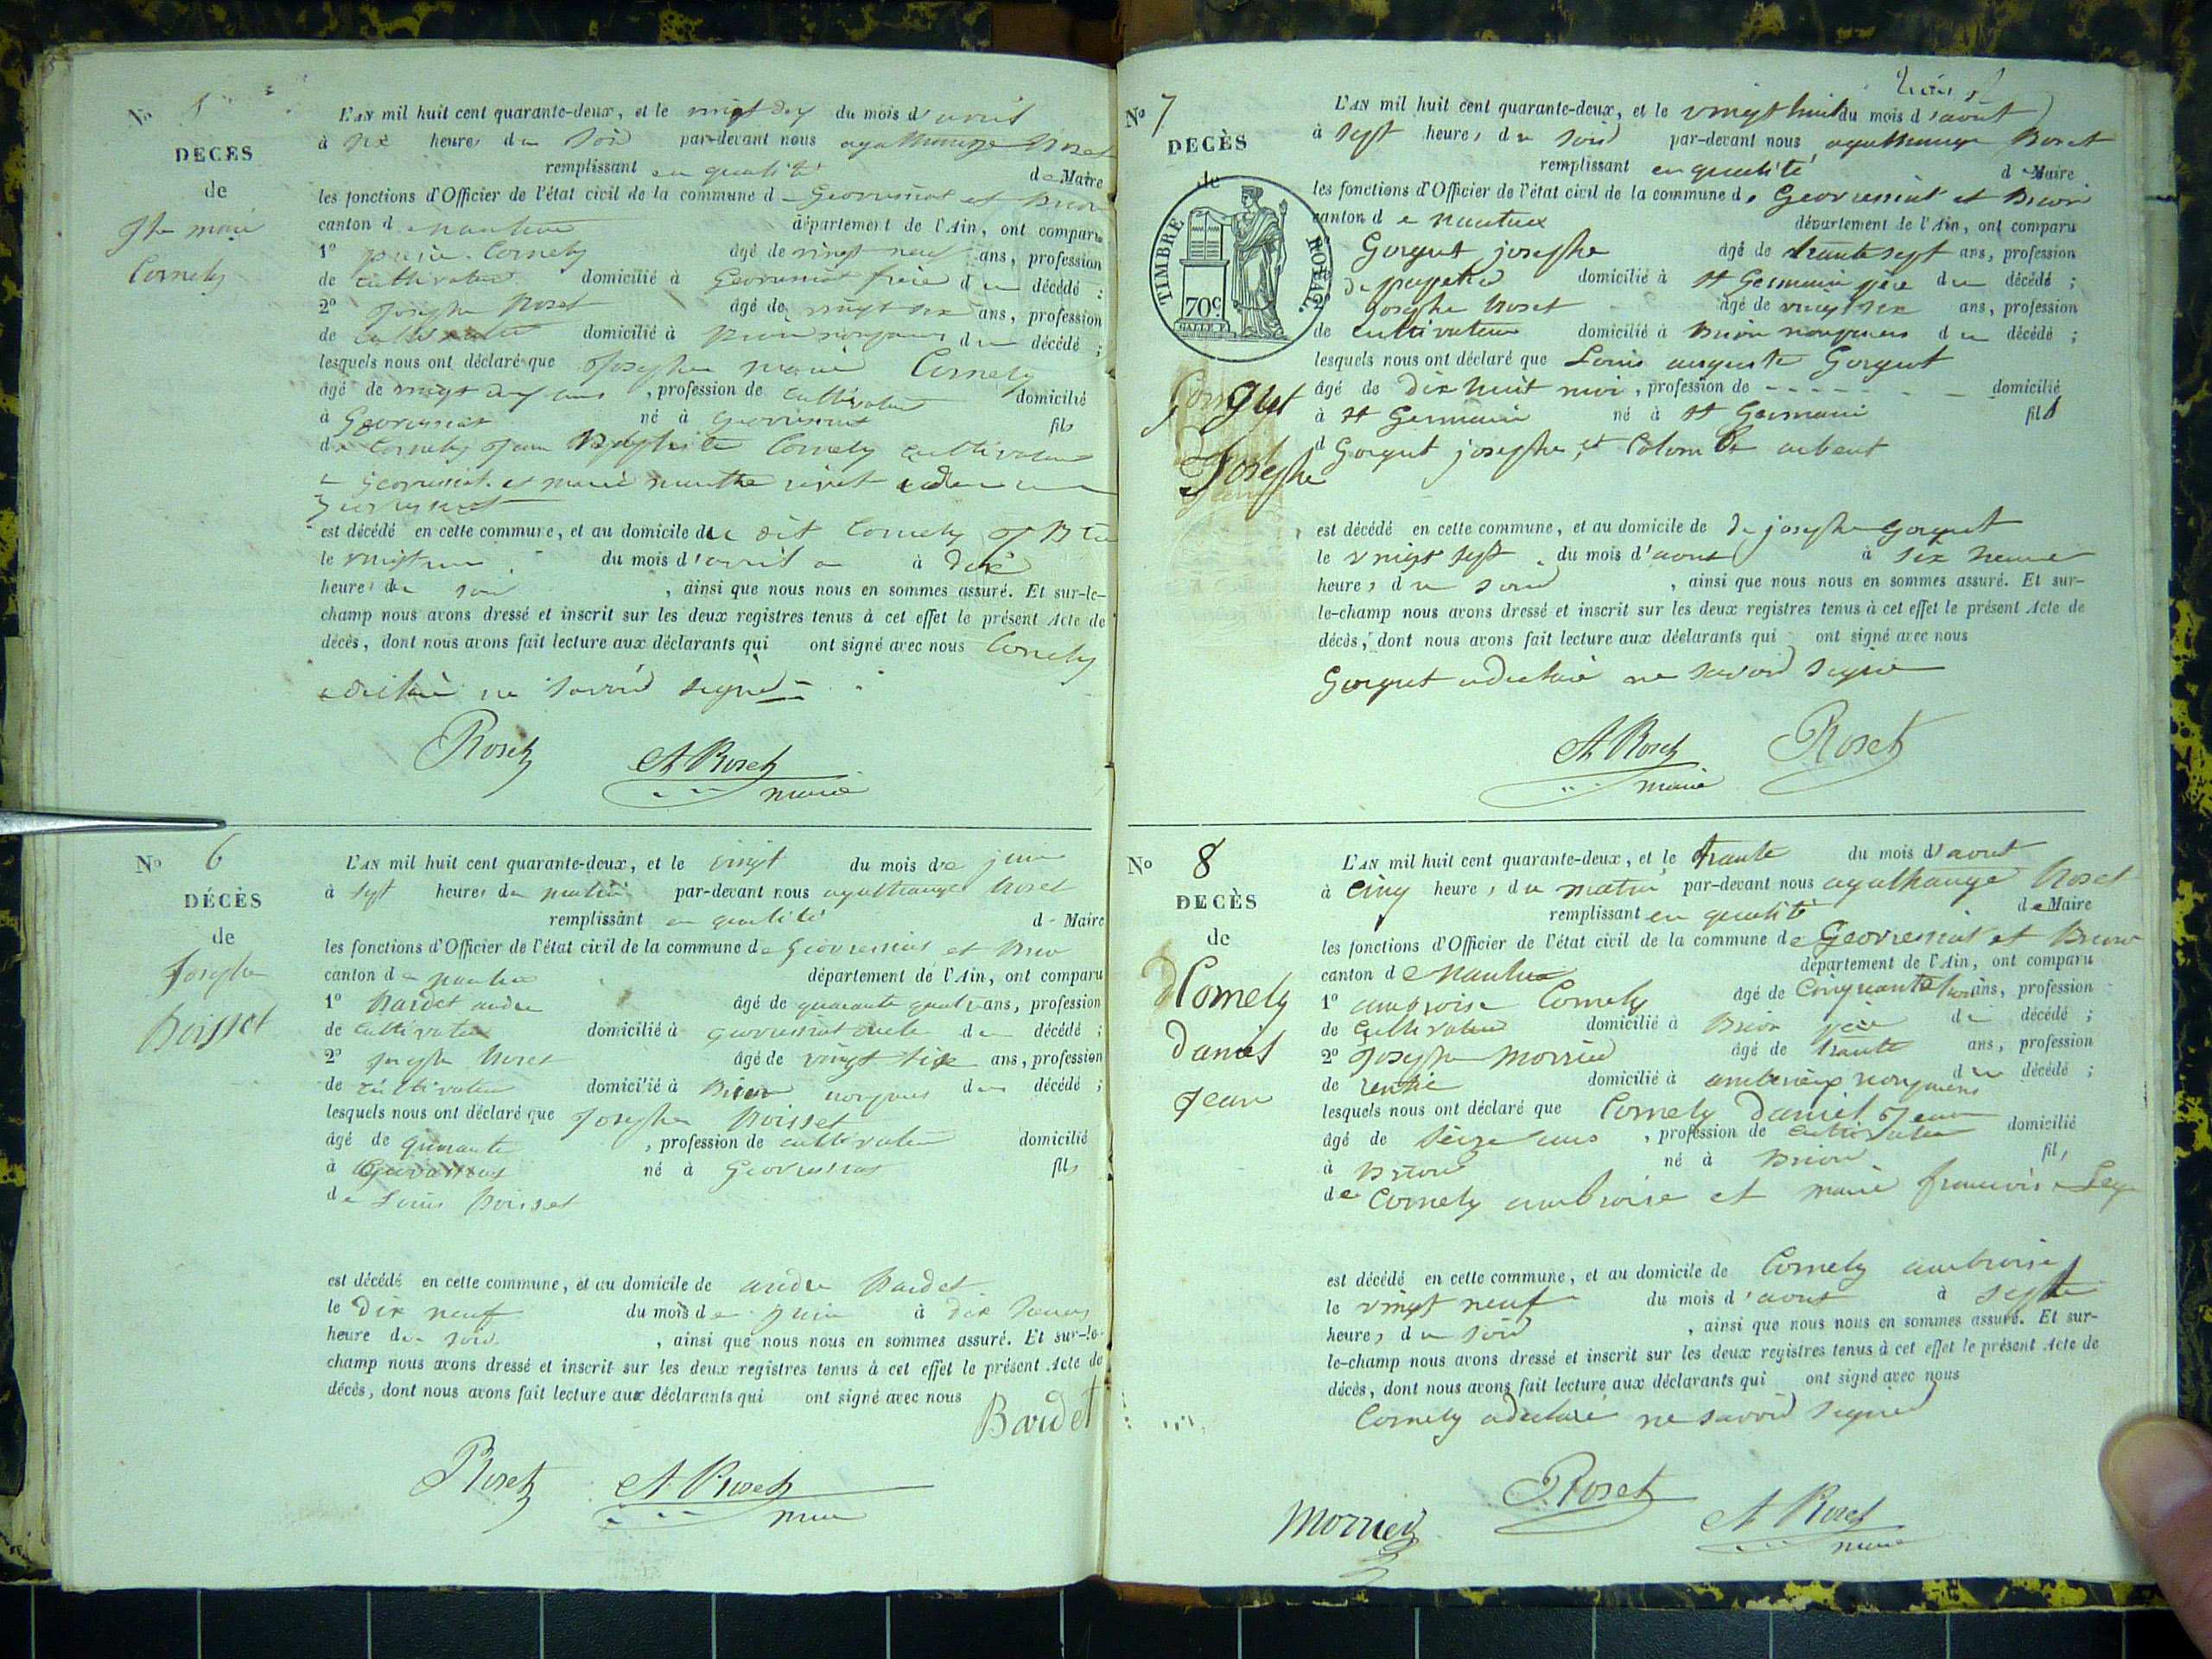 No 5
DECES
de
Jh marie
Cornely
L'AN mil huit cent quarante-deux, et le vingt deux du mois d'avril
à six heures du soir par-devant nous agathange Roset
remplissant en qualité de Maire
les fonctions d'Officier de l'état civil de la commune de Geovressiat et Brion
canton de nantua département de l'Ain, ont comparu
1o Cornely âgé de vingt neuf ans, profession
de cultivateur domicilié à Geovressiat frère du décédé ;
2o Joseph Roset âgé de vingt six ans, profession
de cultivateur domicilié à Brion non parens du décédé ;
lesquels nous ont déclaré que Joseph marie Cornely
âgé de vingt ans , profession de cultivateur domicilié
à Geovressiat né à Geovressiat fils
de Cornely Jean Baptiste Cornely cultivateur
à Geovressiat et marie
Geovressiat
est décédé en cette commune, et au domicile du dit Cornely J Bte
le vingt un du mois d'avril à dix
heures du soir , ainsi que nous nous en sommes assuré. Et sur-le-
champ nous avons dressé et inscrit sur les deux registres tenus à cet effet le présent Acte de
décès, dont nous avons fait lecture aux déclarants qui ont signé avec nous Cornely
a déclaré ne savoir signer
Roset A Roset
maire
No 6
DÉCÈS
de
Joseph
Boisset
L'AN mil huit cent quarante-deux, et le vingt du mois de juin
à sept heures du matin par-devant nous agathange Roset
remplissant en qualité de Maire
les fonctions d'Officier de l'état civil de la commune de Geovressiat et Brion
canton de nantua département de l'Ain, ont comparu
1o Baudet andre âgé de quarante quatre ans, profession
de cultivateur domicilié à Geovressiat oncle du décédé ;
2o Joseph Roset âgé de vingt six ans, profession
de cultivateur domicilié à Brion non parens du décédé ;
lesquels nous ont déclaré que Joseph Boisset
âgé de quarante , profession de cultivateur domicilié
à Geovressiat né à Geovressiat fils
de Louis Boisset
est décédé en cette commune, et au domicile de andre Baudet
le dix neuf du mois de juin à dix heures
heure du soir , ainsi que nous nous en sommes assuré. Et sur-le-
champ nous avons dressé et inscrit sur les deux registres tenus à cet effet le présent Acte de
décès, dont nous avons fait lecture aux déclarants qui ont signé avec nous
Baudet
Roset A Roset
maire
No 7
DECÈS
de
TIMBRE ROYAL
70c
Gorgut
Joseph
L'AN mil huit cent quarante-deux, et le vingt huit du mois d'aout
à sept heures du soir par-devant nous agathange Roset
remplissant en qualité de Maire
les fonctions d'Officier de l'état civil de la commune de Geovressiat et Brion
canton de nantua département de l'Ain, ont comparu
Gorgut joseph âgé de trante sept ans, profession
de papetier domicilié à St Germain père du décédé ;
Joseph Roset âgé de vingt six ans, profession
de cultivateur domicilié à Brion non parens du décédé ;
lesquels nous ont déclaré que Louis auguste Gorgut
âgé de dix huit moi, profession de - - - - - - domicilié
à St Germain né à St Germain fils
d Gorgut joseph, et Colombe
est décédé en cette commune, et au domicile de de joseph Gorgut
le vingt sept du mois d'aout à six heure
heures du soir , ainsi que nous nous en sommes assuré. Et sur-
le-champ nous avons dressé et inscrit sur les deux registres tenus à cet effet le présent Acte de
décès, dont nous avons fait lecture aux déclarants qui ont signé avec nous
Gorgut a déclaré ne savoir signé
A Roset Roset
maire
No 8
DECÈS
de
Cornely
daniel
Jean
L'AN mil huit cent quarante-deux, et le trante du mois d'aout
à cinq heures du matin par-devant nous agathange Roset
remplissant en qualité de Maire
les fonctions d'Officier de l'état civil de la commune de Geovressiat et Brion
canton de Nantua département de l'Ain, ont comparu
1o ambroise Cornely âgé de cinquante ans, profession
de cultivateur domicilié à Brion père du décédé ;
2o Joseph Morrier âgé de trante ans, profession
de rentié domicilié à non parens du décédé ;
lesquels nous ont déclaré que Cornely daniel Jean
âgé de seize ans , profession de cultivateur domicilié
à Brion né à Brion fils
de Cornely ambroise et marie francoise
est décédé en cette commune, et au domicile de Cornely ambroise
le vingt neuf du mois d'aout à sept
heures du soir , ainsi que nous nous en sommes assuré. Et sur-
le-champ nous avons dressé et inscrit sur les deux registres tenus à cet effet le présent Acte de
décès, dont nous avons fait lecture aux déclarants qui ont signé avec nous
Cornely a declaré ne savoir signer
Morrier Roset A Roset
maire